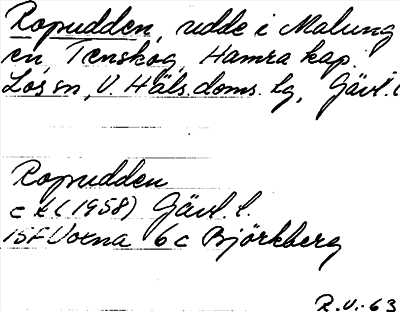 Ropudden, udde i Malung
en, Tenskog, Hamra kap.
Los sn, V. Häls. doms. lg, Gävl. l
Ropudden
c k (1958) Gävl. l.
15F Voxna 6 c Björkberg
R.V.-63